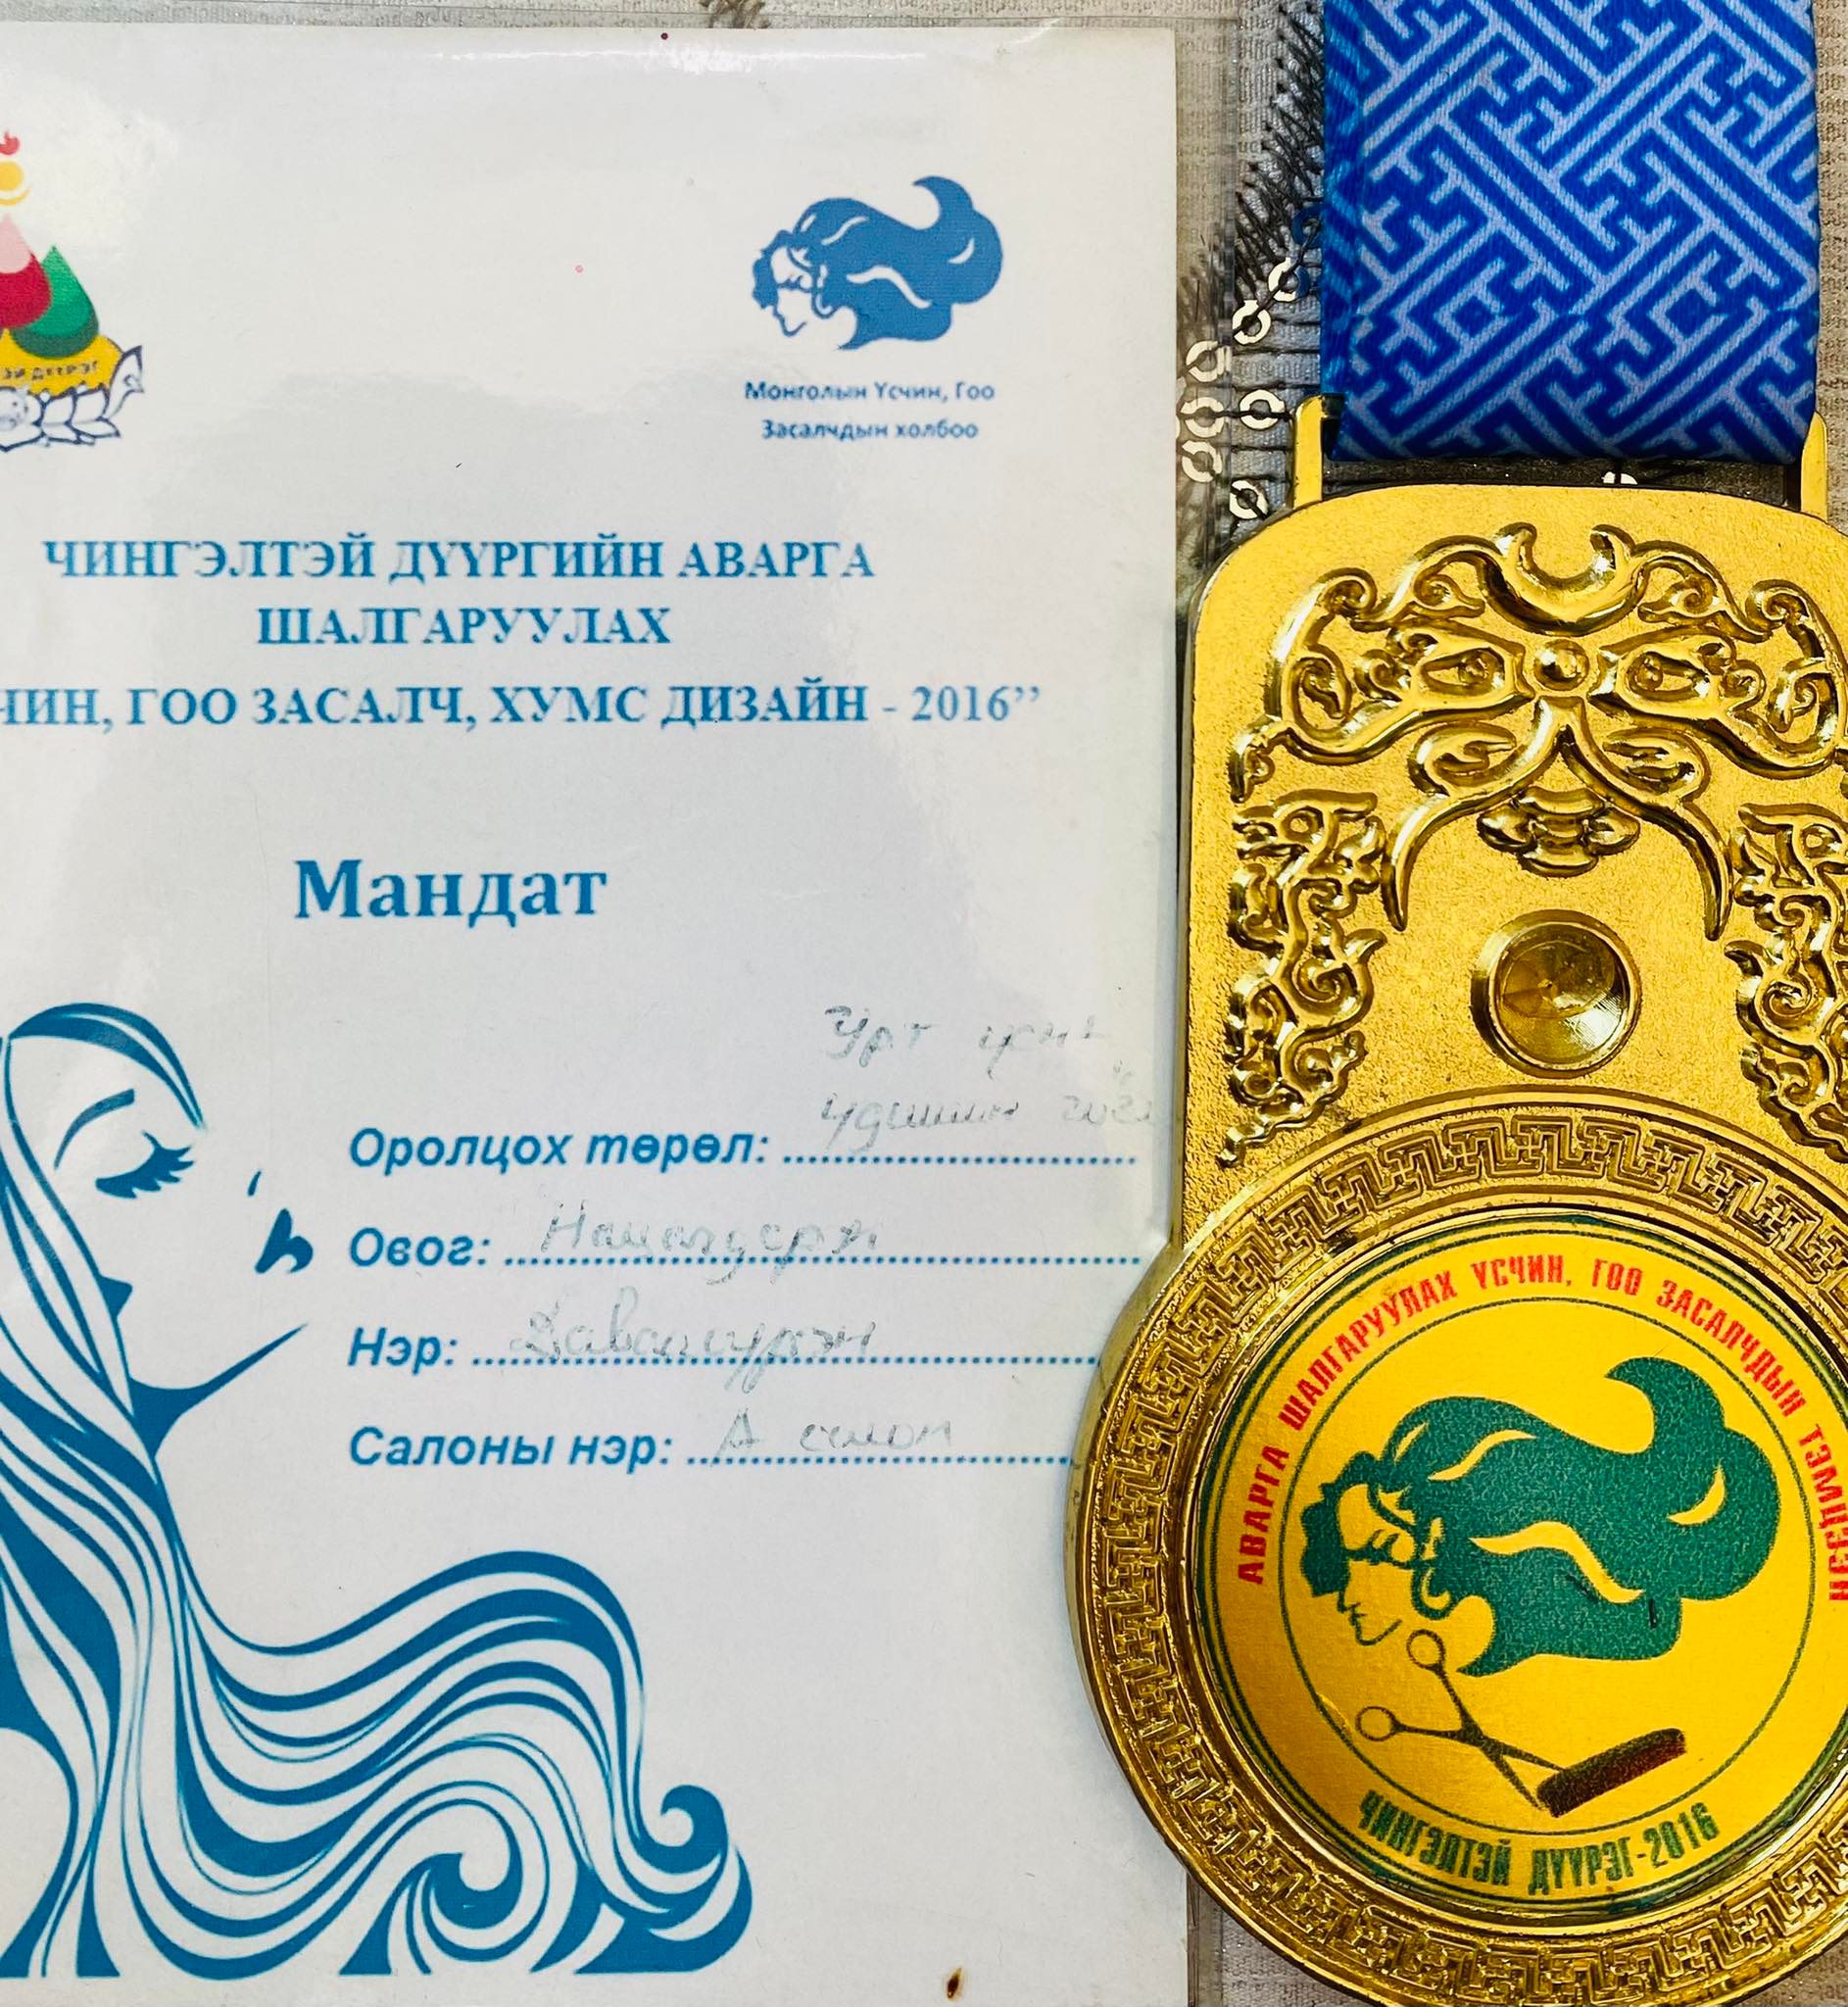 ЗЙ ДҮҮРЭГ
Монголын Үсчин, Гоо
Засалчдын холбоо
ЧИНГЭЛТЭЙ ДҮҮРГИЙН АВАРГА
ШАЛГАРУУЛАХ
ЧИН, ГОО ЗАСАЛЧ, ХУМС ДИЗАЙН - 2016”
Мандат
Урт үсний
Оролцох төрөл: удишин
Овог:
Нэр: Даваасүрэн
Салоны нэр: А салон
АВАРГА ШАЛГАРУУЛАХ ҮСЧИН, ГОО ЗАСАЛЧДЫН ТЭМЦЭЭН
ЧИНГЭЛТЭЙ ДҮҮРЭГ-2016